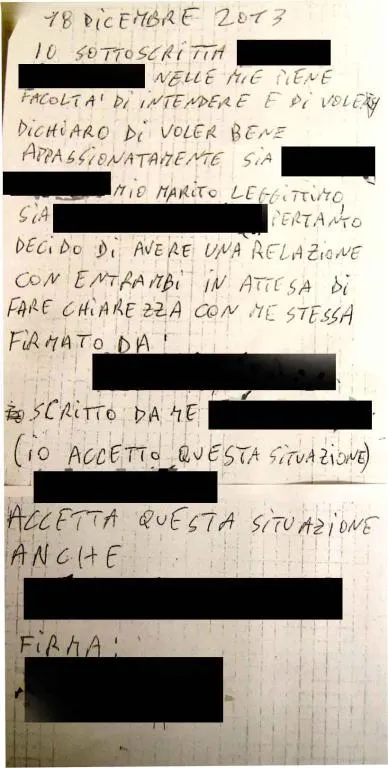 18 DICEMBRE 2013
IO SOTTOSCRITTA
NELLE MIE PIENE
FACOLTA' DI INTENDERE E DI VOLERE
DICHIARO DI VOLER BENE
APPASSIONATAMENTE SIA
MIO MARITO LEGGITTIMO,
SIA PERTANTO
DECIDO DI AVERE UNA RELAZIONE
CON ENTRAMBI IN ATTESA DI
FARE CHIAREZZA CON ME STESSA
FIRMATO DA:
SCRITTO DA ME
(IO ACCETTO QUESTA SITUAZIONE)
ACCETTA QUESTA SITUAZIONE
ANCHE
FIRMA: